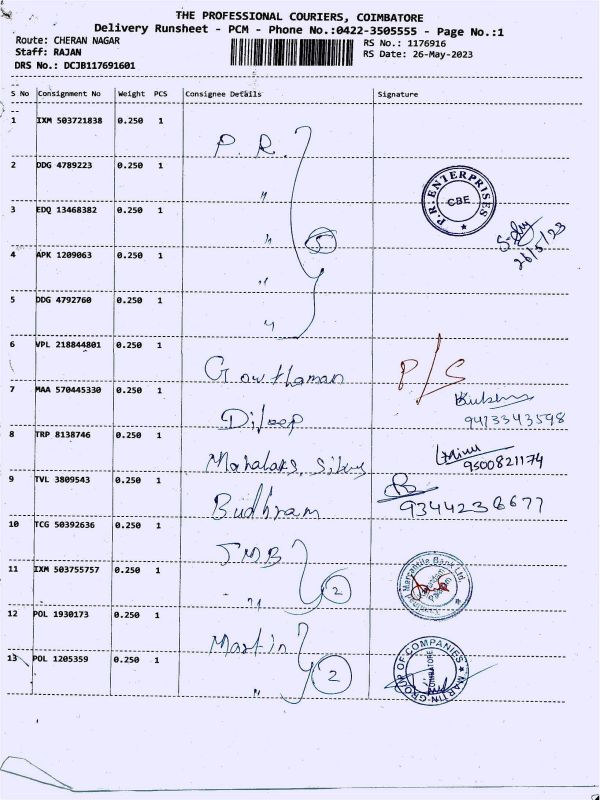 THE PROFESSIONAL COURIERS, COIMBATORE
Delivery Runsheet - PCM - Phone No.:0422-3505555 - Page No.:1
Route: CHERAN NAGAR RS No.: 1176916
Staff: RAJAN RS Date: 26-May-2023
DRS No.: DCJB117691601
S No Consignment No Weight PCS Consignee Details Signature
1 IXM 503721838 0.250 1 P. R.
2 DDG 4789223 0.250 1 "
P.R. ENTERPRISES
CBE
3 EDQ 13468382 0.250 1 " 5
26/5/23
4 APK 1209063 0.250 1 "
5 DDG 4792760 0.250 1 "
6 VPL 218844801 0.250 1 Gowthaman P/S
7 MAA 570445330 0.250 1 Dileep
9413343598
8 TRP 8138746 0.250 1 Mahalaks. Silks
9500821174
9 TVL 3809543 0.250 1 Budhram 9344236677
10 TCG 50392636 0.250 1 TMB
11 IXM 503755757 0.250 1 " 2
Mercantile Bank Ltd
12 POL 1930173 0.250 1 Martin
13 POL 1205359 0.250 1 " 2
MARTIN GROUP OF COMPANIES
COIMBATORE